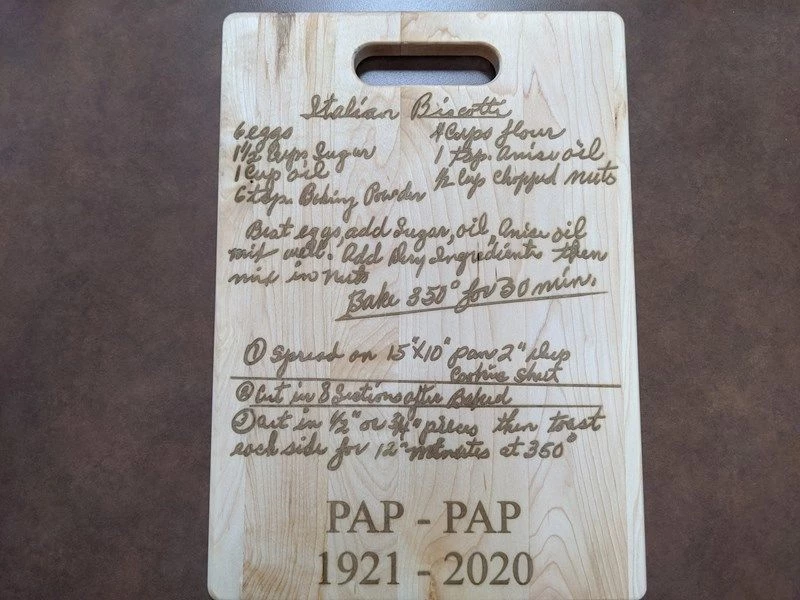 Italian Biscotti
6 eggs 4 Cups flour
1 1/2 Cups Sugar 1 tsp. Anise oil
1 Cup oil 1/2 Cup Chopped nuts
6 tsp. Baking Powder
Beat eggs, add Sugar, oil, Anise oil
mix well. Add Dry Ingredients then
mix in nuts
Bake 350° for 30 min.
① Spread on 15"X10" pan 2" deep
Cookie Sheet
② Cut in 8 Sections after Baked
③ Cut in 1/2" or 3/4" pieces then toast
each side for 12 minutes at 350°
PAP - PAP
1921 - 2020